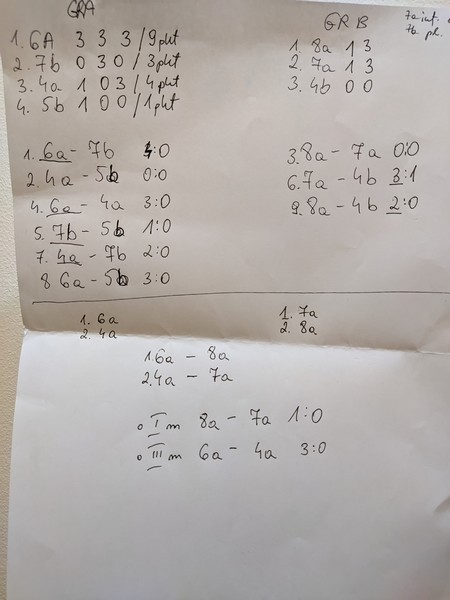 GRA
1. 6A 3 3 3 / 9 pkt
2. 7b 0 3 0 / 3 pkt
3. 4a 1 0 3 / 4 pkt
4. 5b 1 0 0 / 1 pkt
GR B
1. 8a 1 3
2. 7a 1 3
3. 4b 0 0
7a inf.
7b pr.
1. 6a - 7b 4:0
2. 4a - 5b 0:0
4. 6a - 4a 3:0
5. 7b - 5b 1:0
7. 4a - 7b 2:0
8 6a - 5b 3:0
3. 8a - 7a 0:0
6. 7a - 4b 3:1
9. 8a - 4b 2:0
1. 6a
2. 4a
1. 7a
2. 8a
1. 6a - 8a
2. 4a - 7a
o I m 8a - 7a 1:0
o III m 6a - 4a 3:0